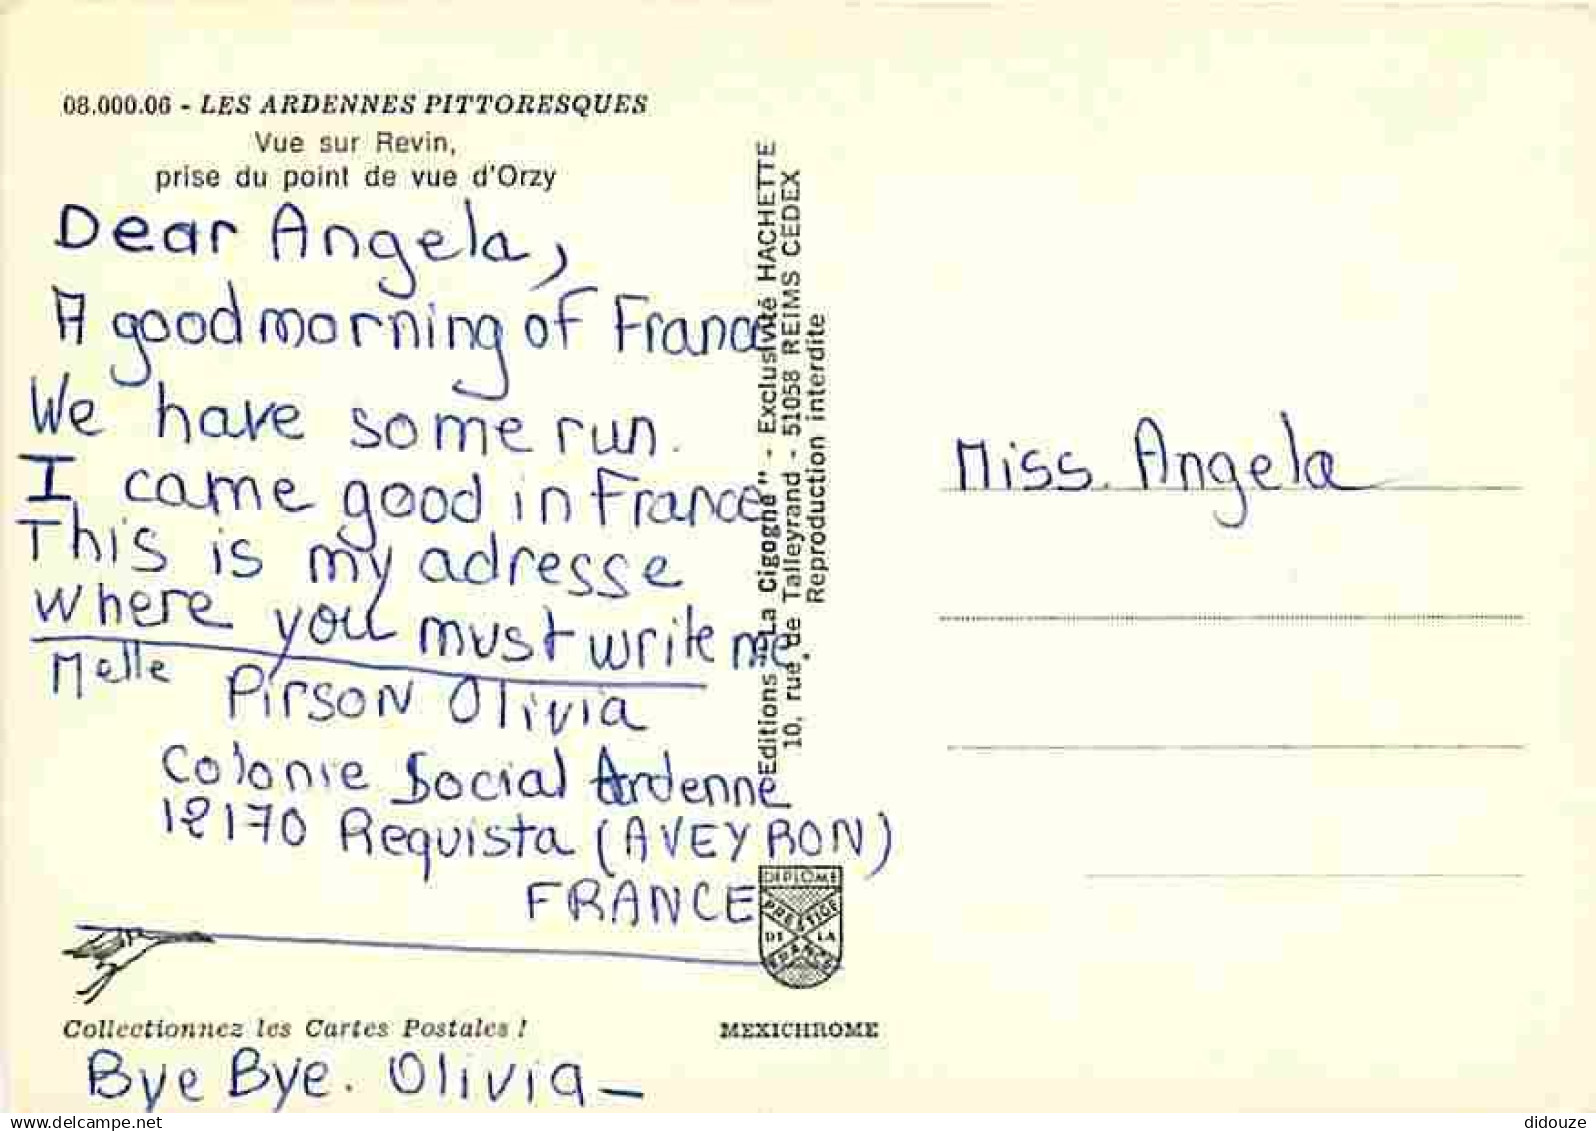 08.000.06 - LES ARDENNES PITTORESQUES
Vue sur Revin,
prise du point de vue d'Orzy
Dear Angela,
A good morning of France
We have some run.
I came good in France
This is my adresse
where you must write me.
Melle Pirson Olivia
Colonie Social Ardenne
12170 Requista (AVEYRON)
FRANCE
Collectionnez les Cartes Postales !
Bye Bye. Olivia
Editions "La Cigogne" - Exclusivité HACHETTE
10, rue de Talleyrand - 51058 REIMS CEDEX
Reproduction interdite
DIPLOME
PRESTIGE
DE LA
FRANCE
MEXICHROME
Miss. Angela
www.delcampe.net
didouze